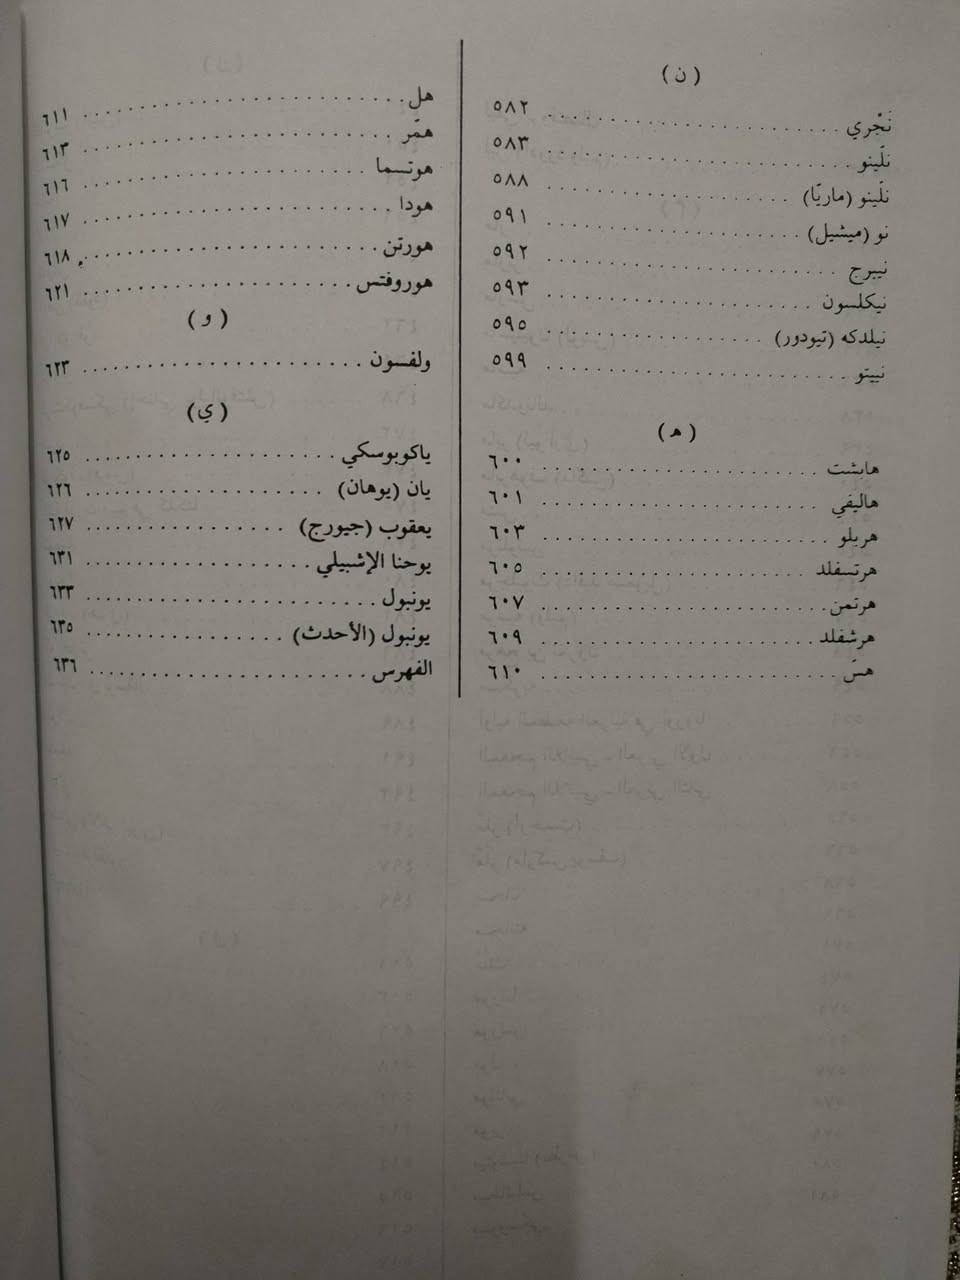 (ن)
نجْري ٥٨٢
نلّينو ٥٨٣
نلّينو (ماريّا) ٥٨٨
نو (ميشيل) ٥٩١
نيبرج ٥٩٢
نيكلسون ٥٩٣
نيلدكه (تيودور) ٥٩٥
نييتو ٥٩٩
(ه)
هاشت ٦٠٠
هاليفي ٦٠١
هربلو ٦٠٣
هرتسفلد ٦٠٥
هرتمن ٦٠٧
هرشفلد ٦٠٩
هسّ ٦١٠
هل ٦١١
همّر ٦١٣
هوتسما ٦١٦
هودا ٦١٧
هورتن ٦١٨
هوروفتس ٦٢١
(و)
ولفسون ٦٢٣
(ي)
ياكوبوسكي ٦٢٥
يان (يوهان) ٦٢٦
يعقوب (جيورج) ٦٢٧
يوحنا الإشبيلي ٦٣١
يونبول ٦٣٣
يونبول (الأحدث) ٦٣٥
الفهرس ٦٣٦